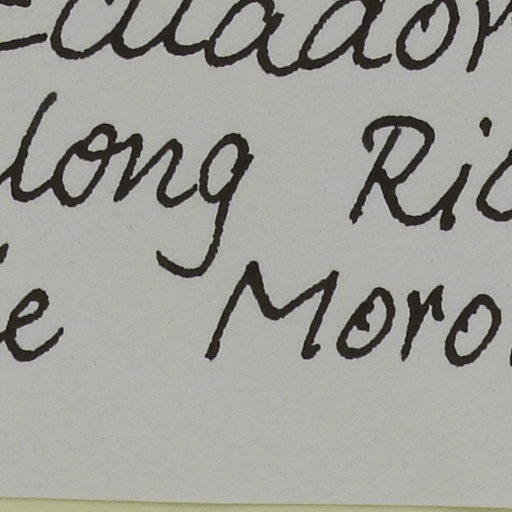 Ecuador
long Ric
e Moro